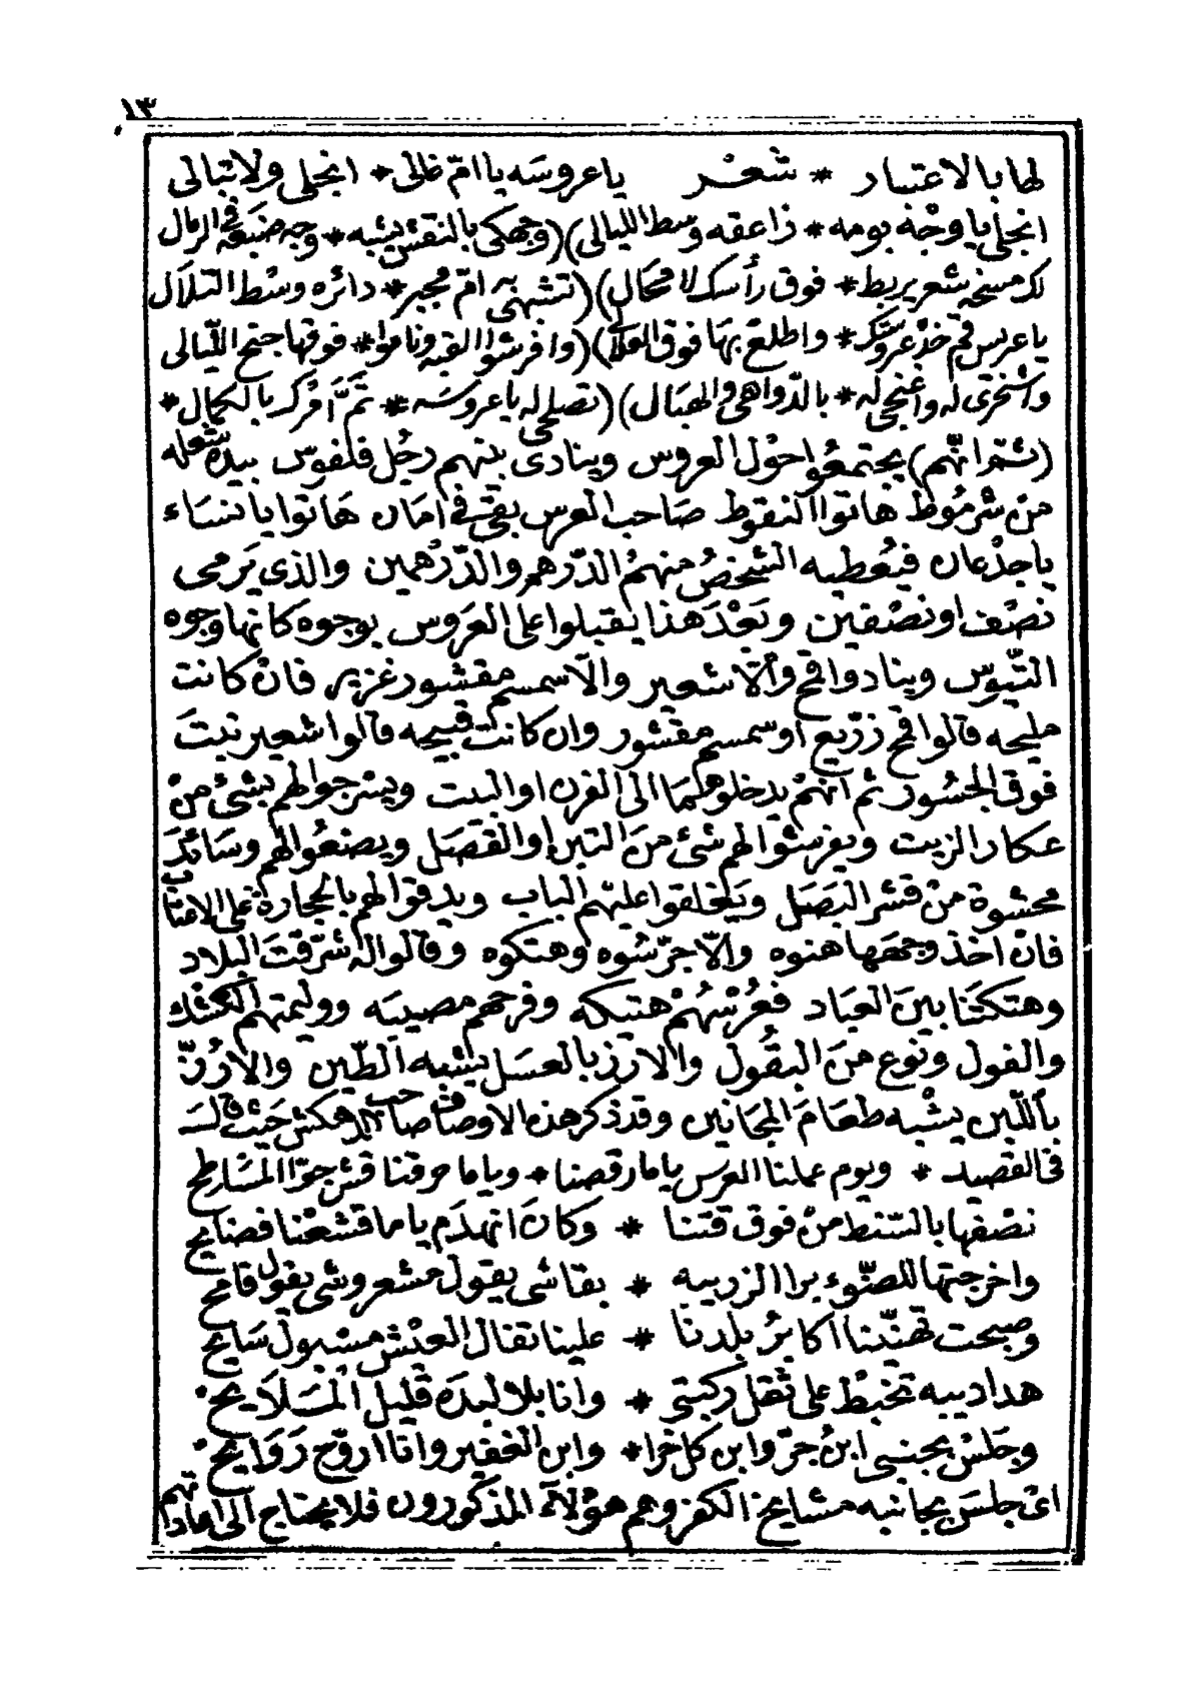 ١٣
لها بالاعتياد * شعر يا عروسه يا امّ غالى * انجلى ولا تبالى
انجلى يا وجه بومه * زاعقه وسط الليالى)(وجهكى بالنقش يشبه * وجه ضبعه فى الرمال
لك مسخه شعر يربط * فوق رأسك لا محال)(تشبهى يه امّ مجبر * دائره وسط التلال
يا عريس قم خذ عروستك * واطلع بها فوق العلالى)(وافرشوا القبه وناموا * فوقها جنح الليالى
واشخرى له واغنجى له * بالدواهى والهبال)(تصلحى له يا عروسه * تمّ امرك بالكمال *
(ثم انهم) يجتمعوا حول العروس وينادى بينهم رجل فلفوس بيده شعله
من شرموط هاتوا النقوط صاحب العرس بقى فى امان هاتوا يا نساء
يا جدعان فيعطيه الشخص منهم الدّرهم والدّرهمين والذى يرمى
نصف او نصفين وبعد هذا يقبلوا على العروس بوجوه كانها وجوه
التيوس وينادوا قمح والّا شعير والّا سمسم مقشور غزير فان كانت
مليحه قالوا قمح زرّيع او سمسم مقشور وان كانت قبيحه قالوا شعير نبت
فوق الجسور ثم انهم يدخلوهما الى الفرن او البيت ويسرجوا لهم بشئ من
عكار الزيت ويفرشوا لهم شئ من التبن او القصل ويصنعوا لهم وسائد
محشوة من قشر البصل ويغلقوا عليهم الباب ويدقوا لهم بالحجارة على الاعتاب
فان اخذ وجهها هنوه والّا جرّسوه وهتكوه وقالوا له شرّقت البلاد
وهتكتنا بين العباد فعرسهم هتيكه وفرحهم مصيبه ووليمتهم الكشك
والفول ونوع من البقول والارز بالعسل يشبه الطّين والارزّ
باللّبن يشبه طعام المجانين وقد ذكر هذه الاوصاف صاحب الدهكش حيث قال
فى القصيد * ويوم عملنا العرس ياما رقصنا * وياما حرقنا قش جوّا المشارط
نصفها بالشنط من فوق قتنا * وكان انهدم ياما قشعنا فضايح
واخرجتها للضّوء برا الزريبه * بقا شى يقول مشعر وشى يقول قامح
وصبحت تهنّينا اكابر بلدنا * علينا تقال العنش مسبول سايح
هداديبه تخبط على ثقل ركبتى * وانا بلا لبده قليل المسلايح
وجلس بجنبى ابن جرّ وابن كل خرا * وابن الغفير وانا اروّح روايح
اى جلس بجانبه مشايخ الكفر وهم هؤلاء المذكورون فلا يحتاج الى اعادتهم